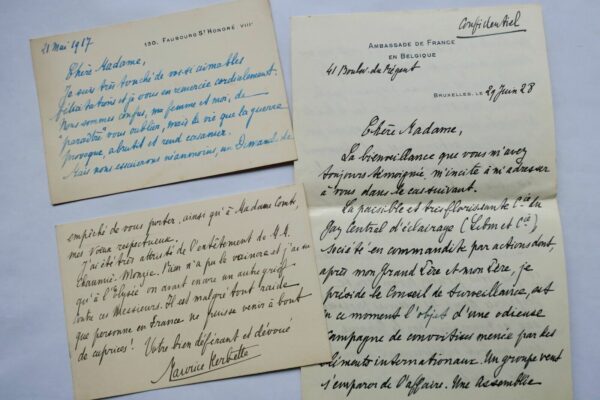 150, Faubourg St Honoré VIIIe
21 Mai 1917
Chère Madame,
Je suis très touché de vos si aimables
félicitations et je vous en remercie cordialement.
Nous sommes confus, ma femme et moi, de
"paraître" vous oublier, mais la vie que la guerre
provoque, abrutit et rend casanier.
Mais nous essuierons néanmoins, un Dimanche de
empêché de vous porter, ainsi qu'à Madame Comte,
mes vœux respectueux.
J'ai été très attristé de l'entêtement de M.M.
Chaumié. Monzie. Rien n'a pu le vaincre et j'ai su
qu'à l'Elysée on avait encore un autre grief
contre ces Messieurs. Il est malgré tout raide
que personne en France ne puisse venir à bout
de caprices! Votre bien déférant et dévoué
Maurice Herbette
Confidentiel
Ambassade de France
en Belgique
41 Boulev. du Régent
Bruxelles, le 29 Juin 28
Chère Madame,
La bienveillance que vous m'avez
toujours témoignée, m'incite à m'adresser
à vous dans le cas suivant.
La paisible et très florissante Cie du
Gaz central d'éclairage (Lebon et Cie)
société en commandite par actions dont,
après mon Grand Père et mon Père, je
préside le Conseil de Surveillance, est
en ce moment l'objet d'une odieuse
campagne de convoitises menée par des
éléments internationaux. Un groupe veut
s'emparer de l'affaire. Une Assemblée